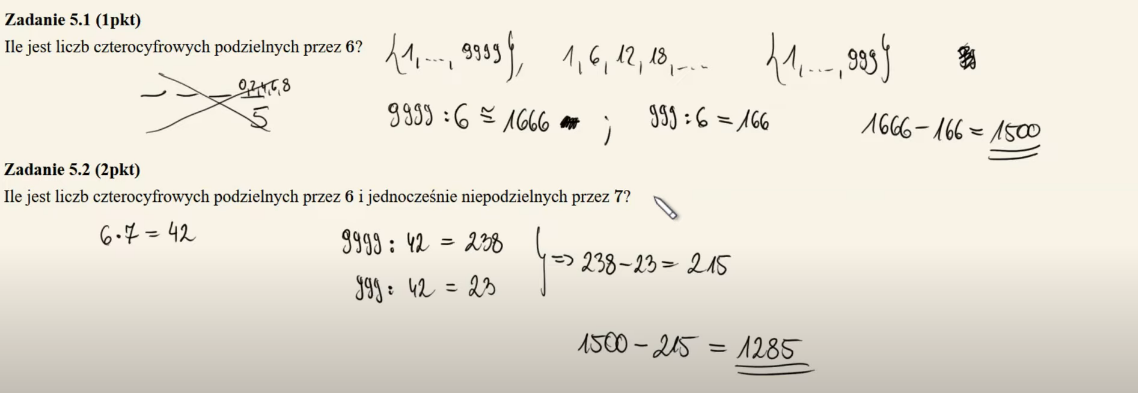 Zadanie 5.1 (1pkt)
Ile jest liczb czterocyfrowych podzielnych przez 6?
{1,...,9999}, 1,6,12,18,... {1,...,999}
_ _ _ 0,2,4,6,8
5
9999 : 6 ≅ 1666 ; 999 : 6 = 166 1666 - 166 = 1500
Zadanie 5.2 (2pkt)
Ile jest liczb czterocyfrowych podzielnych przez 6 i jednocześnie niepodzielnych przez 7?
6·7 = 42
9999 : 42 = 238
999 : 42 = 23
} => 238 - 23 = 215
1500 - 215 = 1285